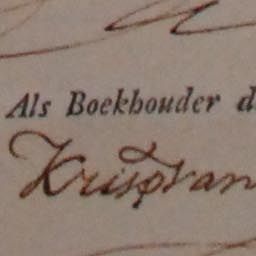 Als Boekhouder d
Krisp van